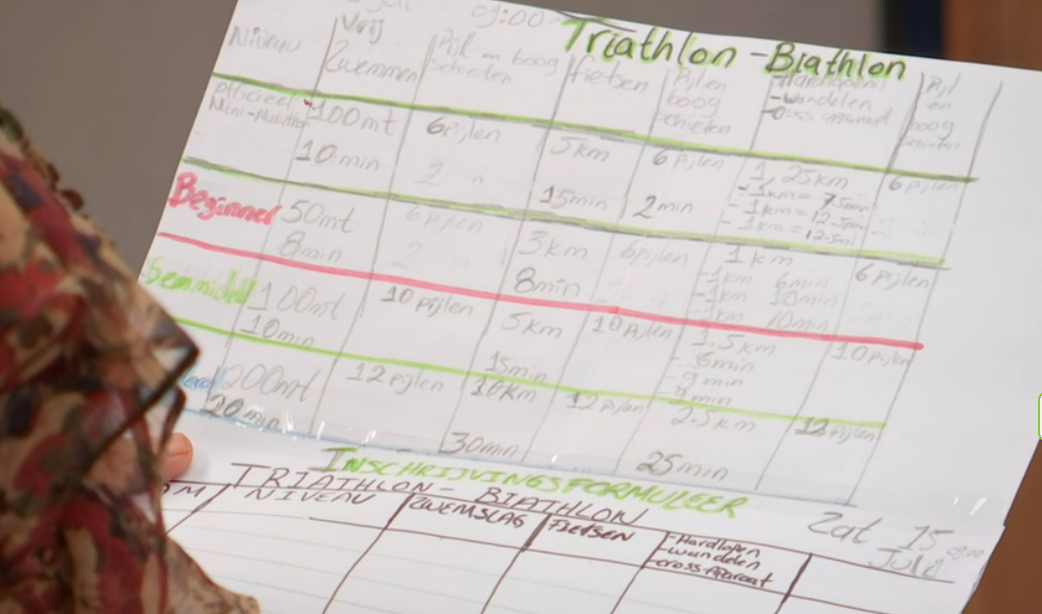 09:00
Triathlon - Biathlon
Niveau
Vrij
Zwemmen
Pijl en boog
schieten
fietsen
Pijlen
boog
schieten
Hardlopen
-wandelen
-cross apparaat
Pijl
en
boog
schieten
officieel
100mt
10min
6pijlen
2
5km
15min
6 pijlen
2min
1.25km
- 1km = 7.5min
- 1km = 12.5min
- 1km = 12.5mi
6 pijlen
Beginner
50mt
8min
6 pijlen
2
3km
8min
6pijlen
1km
-1km 6min
-1km 10min
-1km 10min
6 pijlen
100mt
10min
10 pijlen
5km
15min
10 pijlen
1.5km
- 6min
- 9min
9min
10 pijlen
200mt
20min
12 pijlen
10km
30min
12 pijlen
2.5km
25min
12 pijlen
INSCHRIJVINGSFORMULEER
TRIATHLON - BIATHLON
Zat 15
Juli
09:00
NIVEAU
ZWEMSLAG
FIETSEN
-Hardlopen
-wandelen
-cross-Apparaat